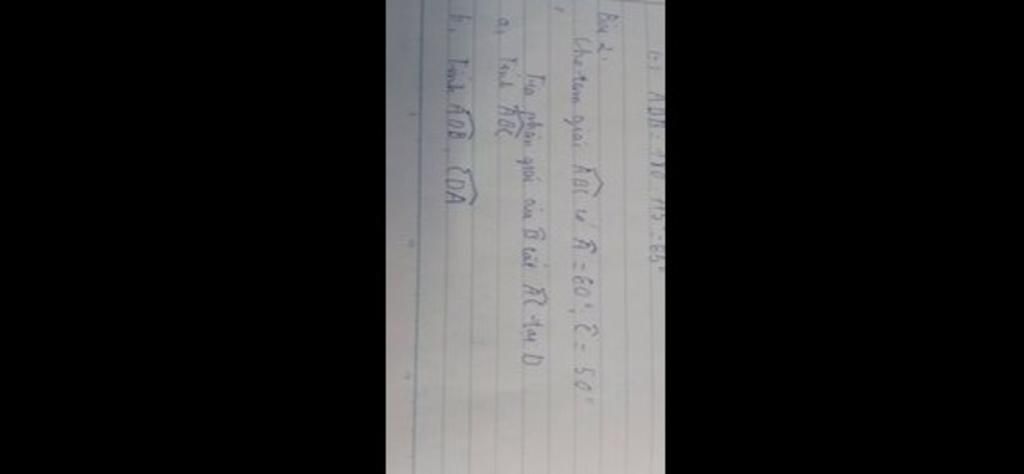 ADB = 180 - 115 = 65°
Bài 2:
Cho tam giác ABC có Â = 60°, Ĉ = 50°
Tia phân giác của B̂ cắt AC tại D
a, Tính ABC
b, Tính ADB, CDA